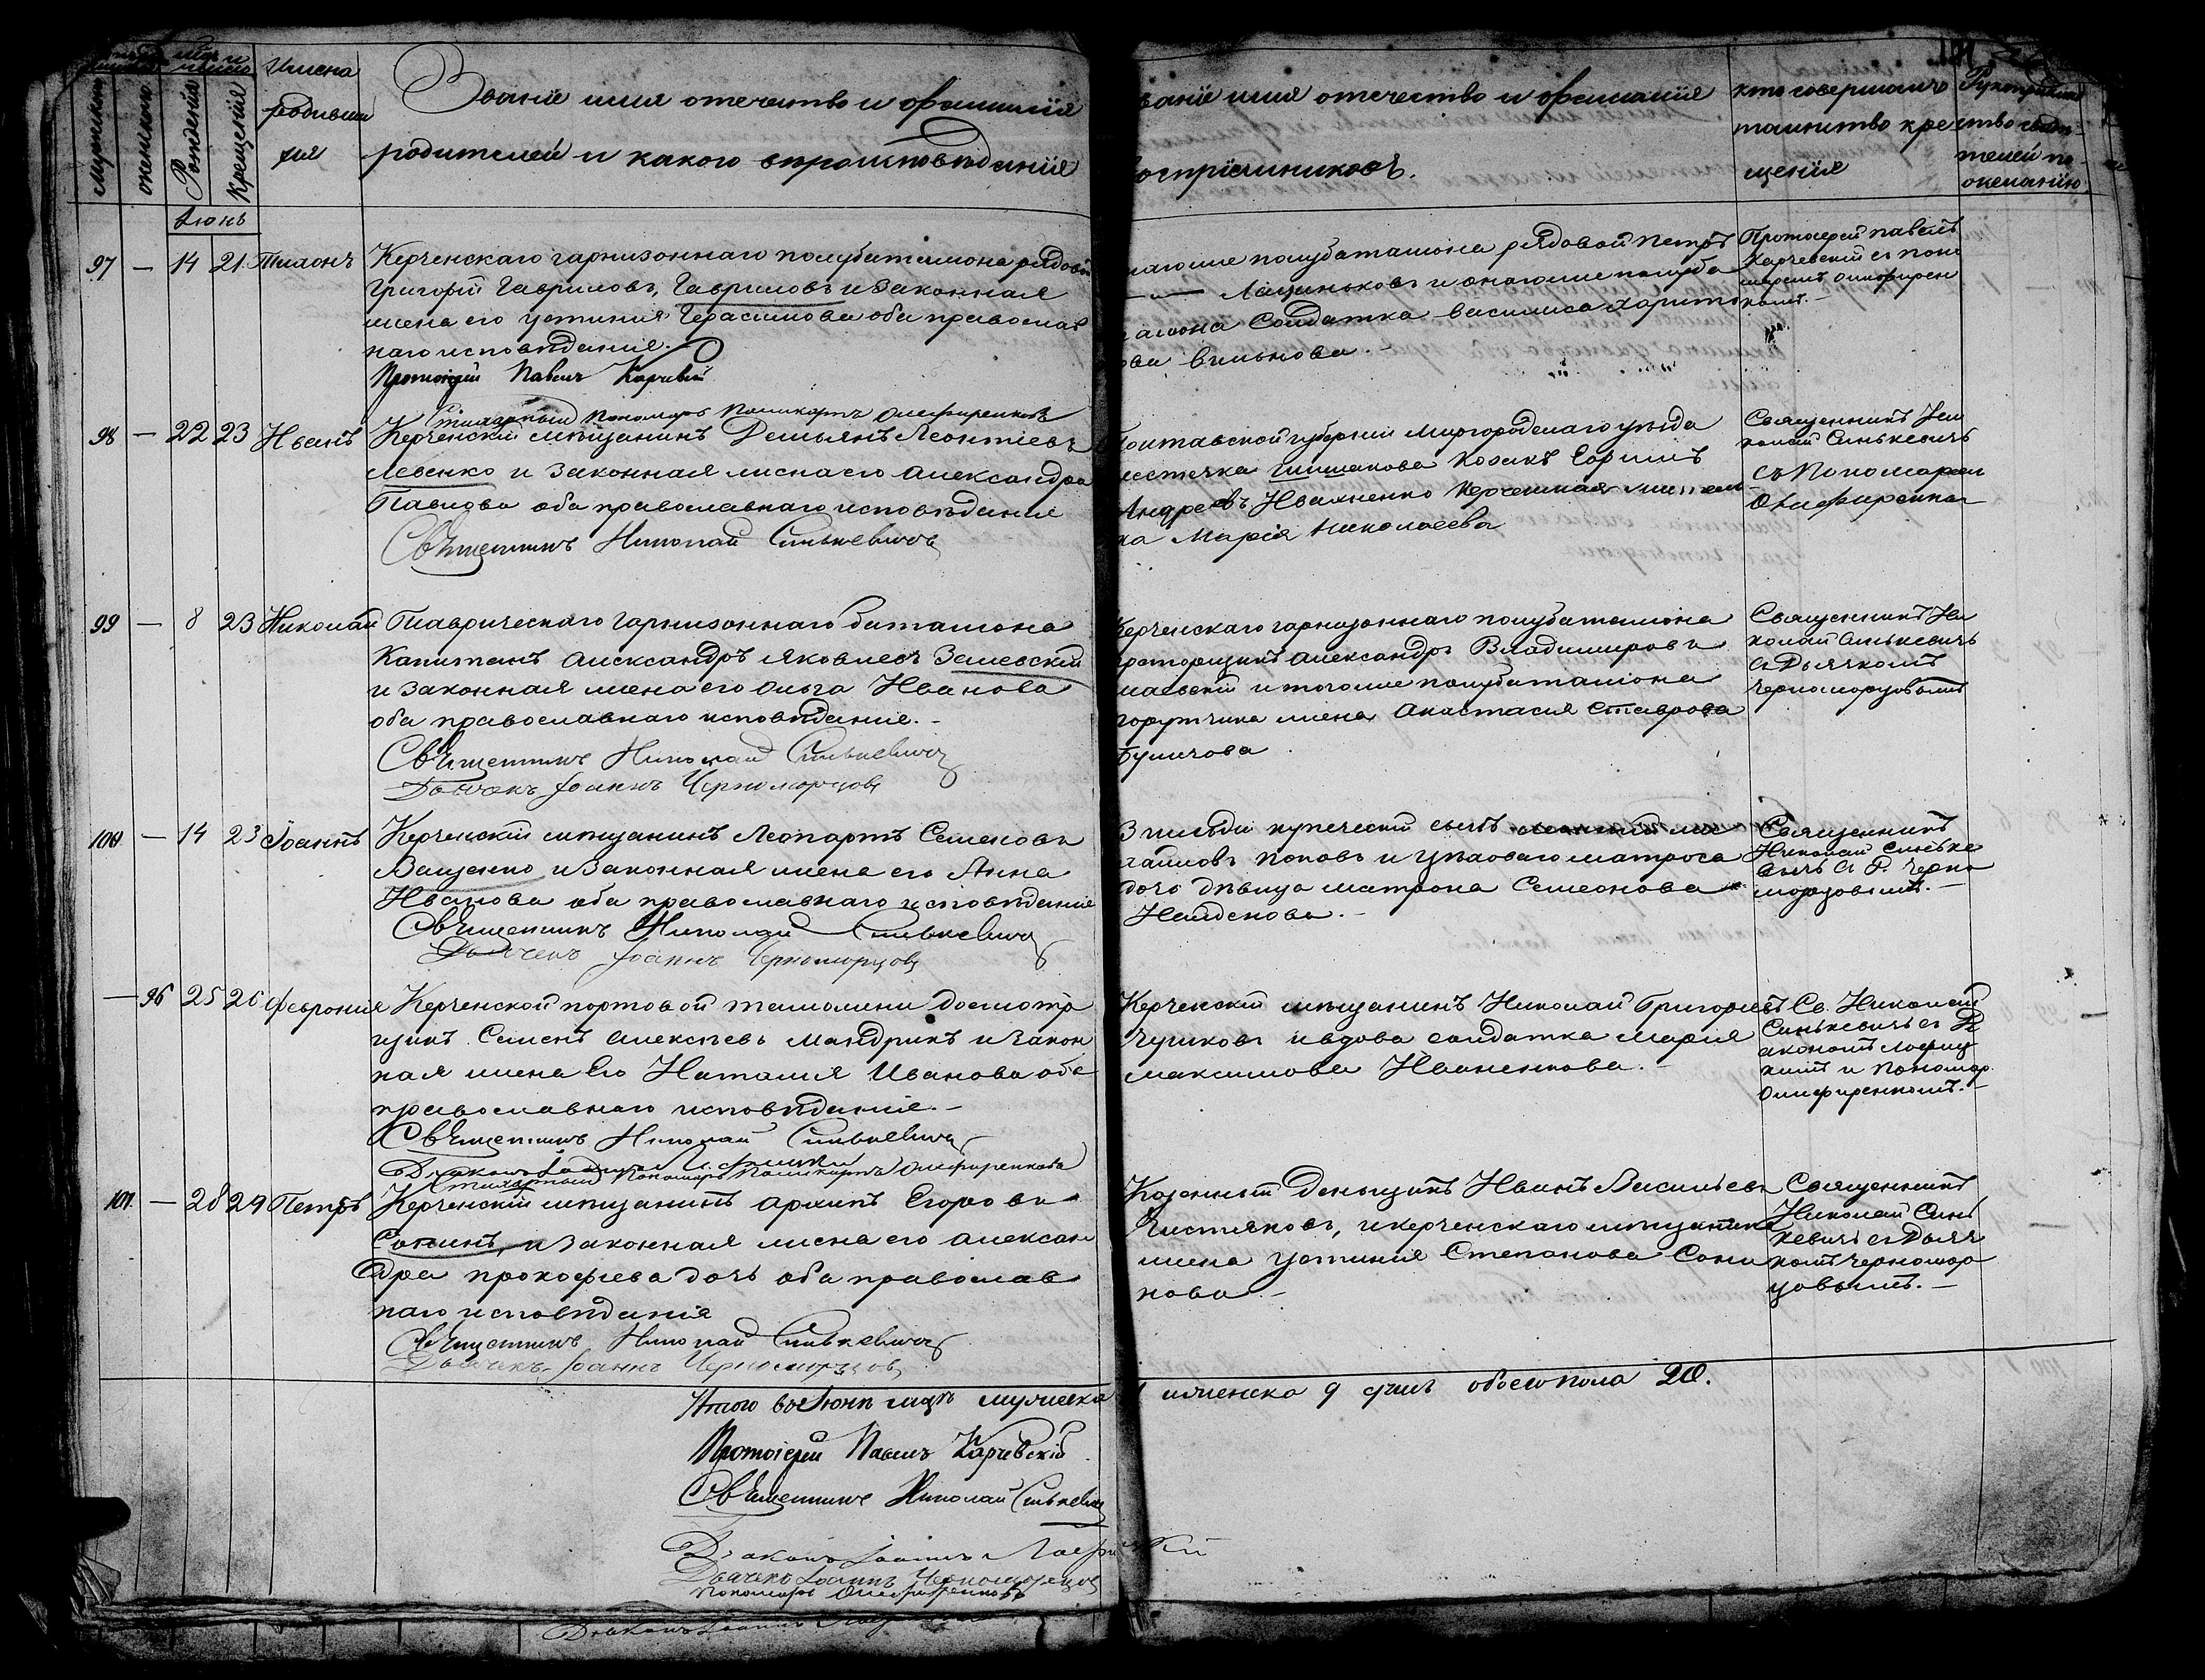 Имена
родивши
хся
Званїе имя отечество и фамилїя
родителей и какого вѣроисповѣданїя
мужескихъ
женскихъ
Рожденїя
Крещенїя
Іюнь
званїе имя отечество и фамилїя
воспрїемниковъ.
кто совершалъ
таинство кре
щенїя
Рукоприклад
ство свидѣ-
телей по
желанїю.
97 — 14 21 Тихонъ
Керченскаго гарнизоннаго полубаталиона рядовой
Григорїй Гавриловъ, Гавриловъ и законная
жена его Устинія Герасимова оба православ
наго исповѣданія.-
Протоіерей Павелъ Карчевскій
Стихарный Пономарь Поликарпъ Олефиренковъ
полубаталиона рядовой Петръ
Лащиньковъ и онагоже полуба
талиона Солдатка Василиса Харито
нова Вилькова.-
Протоіерей Павелъ
Карчевскій съ поно
маремъ Олефирен
комъ.-
98 — 22 23 Иванъ
Керченскій мѣщанинъ Демьянъ Леонтіевъ
Левенко и законная жена его Александра
Павлова оба православнаго исповѣданія
Священникъ Николай Синькевичъ
Полтавской губерніи Миргородскаго уѣзда
местечка Шишакова Козакъ Ефимъ
Андреевъ Ивахненко Керченская мѣщан
ка Марія Николаева
Священникъ Ни
колай Синькевичъ
съ Пономаремъ
Олефиренком
99 — 8 23 Николай
Таврическаго гарнизоннаго баталиона
Капитанъ Александръ Яковлевъ Зелевскій
и законная жена его Ольга Иванова
оба православнаго исповѣданія.-
Священникъ Николай Синькевичъ
Дьячекъ Іоаннъ Черноморцовъ
Керченскаго гарнизоннаго полубаталиона
прапорщикъ Александръ Владимировъ
маевскій и тогоже полубаталиона
порутчика жена Анастасия Ставрова
Буличова
Священникъ Ни
колай Синькевичъ
съ Дьячкомъ
Черноморцовымъ
100 — 14 23 Іоаннъ
Керченскій мѣщанинъ Леопартъ Семеновъ
Ващенко и законная жена его Анна
Иванова оба православнаго исповѣданія
Священникъ Николай Синькевичъ
Дьячекъ Іоаннъ Черноморцовъ
3 гильдіи купеческій сынъ
хайловъ Поповъ и матроса
дочь дѣвица Матрона Семеонова
Найденова.-
Священникъ
Николай Синьке
вичъ съ Д. Черно
морцовымъ.-
— 96 25 26 Февронія
Керченской портовой таможни досмотр
щикъ Семенъ Алексѣевъ Мандрикъ и закон
ная жена его Наталия Иванова оба
православнаго исповѣданія.-
Священникъ Николай Синькевичъ
Діаконъ Іоаннъ
Стихарный Пономарь Поликарпъ Олефиренковъ
Керченскій мѣщанинъ Николай Григорьевъ
Чушковъ и вдова солдатка Марія
Максимова Иваненкова.-
Св. Николай
Синькевичъ съ Ді
акономъ
и Пономар.
Олефиренкомъ.-
101. — 28 29 Петръ
Керченскій мѣщанинъ Архипъ Егоровъ
Сонинъ, и законная жена его Алексан
дра Прокофіева дочь оба православ
наго исповѣданія
Священникъ Николай Синькевичъ
Дьячекъ Іоаннъ Черноморцовъ
Козенный Деньщикъ Иванъ Васильевъ
Чистяковъ, и керченскаго мѣщанина
жена Устинія Степанова Сони
нова.-
Священникъ
Николай Синь
кевичъ съ Дьяч
комъ Черномор
цовымъ.-
Итого въ Іюнѣ мцѣ мужеска
и женска 9 душъ обоего пола 20.
Протоіерей Павелъ Карчевскій
Священникъ Николай Синькевичъ
Діаконъ Іоаннъ
Дьячекъ Іоаннъ Черноморцовъ
Пономарь Олефиренковъ
Діаконъ Іоаннъ